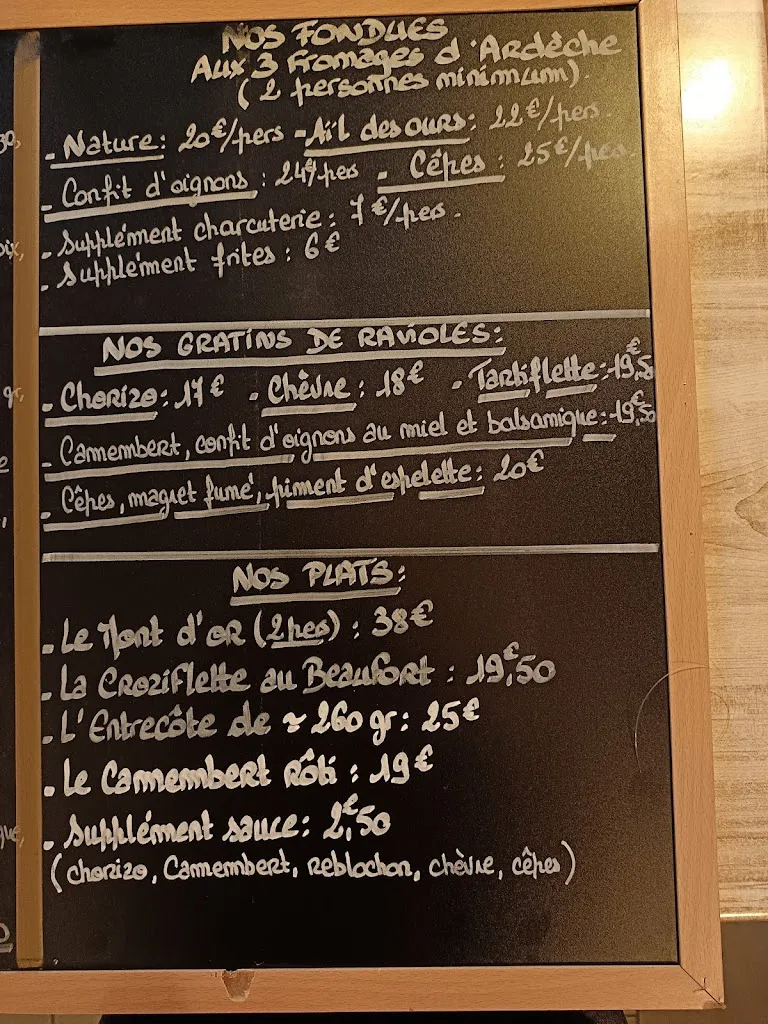 NOS FONDUES
Aux 3 Fromages d'Ardèche
(2 personnes minimum).
- Nature: 20€/pers - Ail des ours: 22€/pers.
- Confit d'oignons: 24€/pes - Cêpes: 25€/pes.
- Supplément charcuterie: 7€/pes.
- Supplément frites: 6€
NOS GRATINS DE RAVIOLES:
- Chorizo: 17€ - Chèvre: 18€ - Tartiflette: 19,€5
- Camembert, confit d'oignons au miel et balsamique: 19,€50
- Cêpes, magret fumé, piment d'espelette: 20€
NOS PLATS:
- Le Mont d'or (2 pes): 38€
- La Croziflette au Beaufort: 19,€50
- L'Entrecôte de ~ 260 gr: 25€
- Le Camembert rôti: 19€
- Supplément sauce: 2,€50
(chorizo, Camembert, reblochon, chèvre, cêpes)